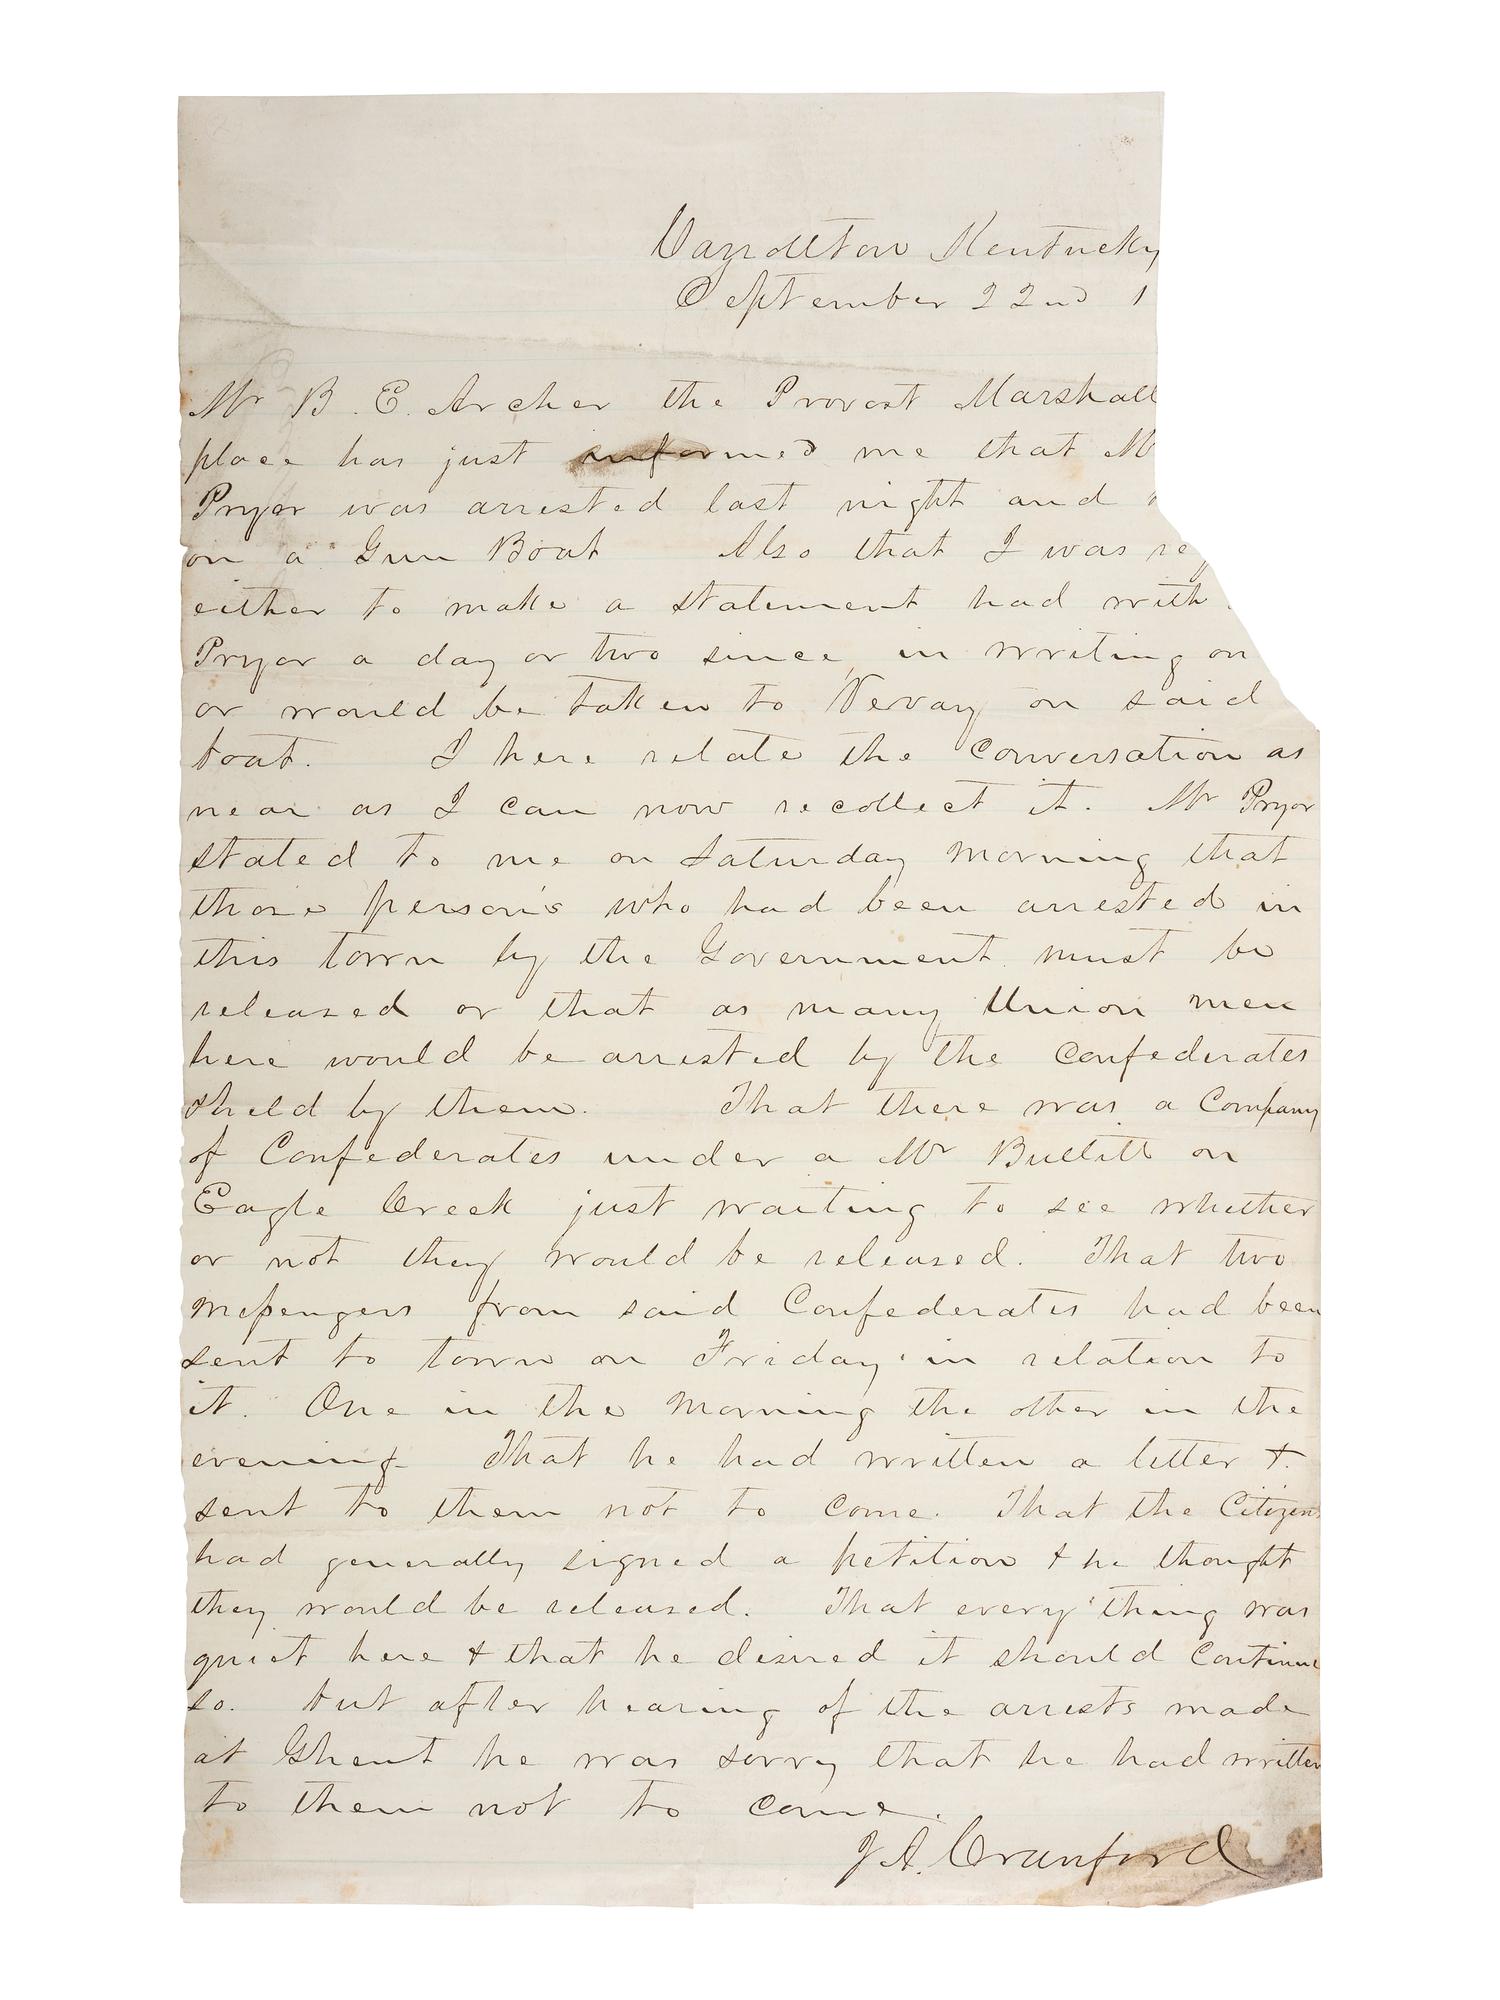 Carrollton Kentucky
September 22nd 1
Mr B. E. Archer the Provost Marshall
place has just informed me that M
Pryor was arrested last night and
on a Gun Boat Also that I was re
either to make a statement had with
Pryor a day or two since, in writing on
or would be taken to Vevay on said
boat. I here relate the conversation as
near as I can now recollect it. Mr Pryor
stated to me on Saturday morning that
those person's who had been arrested in
this town by the Government must be
released or that as many Union men
here would be arrested by the Confederates
& held by them. That there was a Company
of Confederates under a Mr Bullitt on
Eagle Creek just waiting to see whether
or not they would be released. That two
messengers from said Confederates had been
sent to town on Friday in relation to
it. One in the morning the other in the
evening That he had written a letter &
sent to them not to come. That the Citizens
had generally signed a petition & he thought
they would be released. That every thing was
quiet here & that he desired it should continue
so. but after hearing of the arrests made
at Ghent he was sorry that he had written
to them not to come.
J A. Crawford